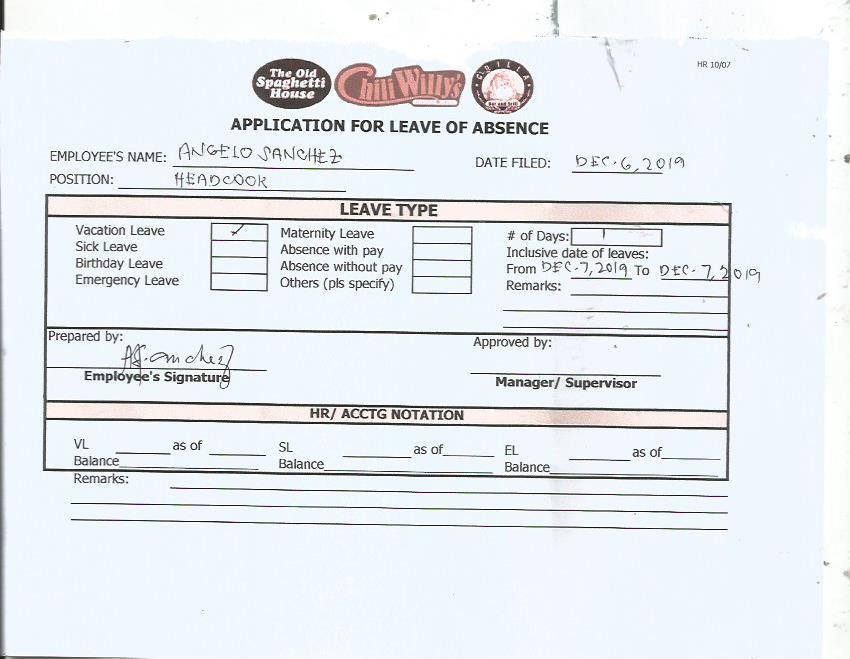 HR 10/07
The Old
Spaghetti
House
Chili Willy's
GRILLA
Bar and Grill
APPLICATION FOR LEAVE OF ABSENCE
EMPLOYEE'S NAME: ANGELO SANCHEZ
DATE FILED: DEC. 6, 2019
POSITION: HEADCOOK
LEAVE TYPE
Vacation Leave ✓
Sick Leave
Birthday Leave
Emergency Leave
Maternity Leave
Absence with pay
Absence without pay
Others (pls specify)
# of Days: 1
Inclusive date of leaves:
From DEC. 7, 2019 To DEC. 7, 2019
Remarks:
Prepared by:
ASanchez
Employee's Signature
Approved by:
Manager/ Supervisor
HR/ ACCTG NOTATION
VL as of
Balance
SL as of
Balance
EL as of
Balance
Remarks: